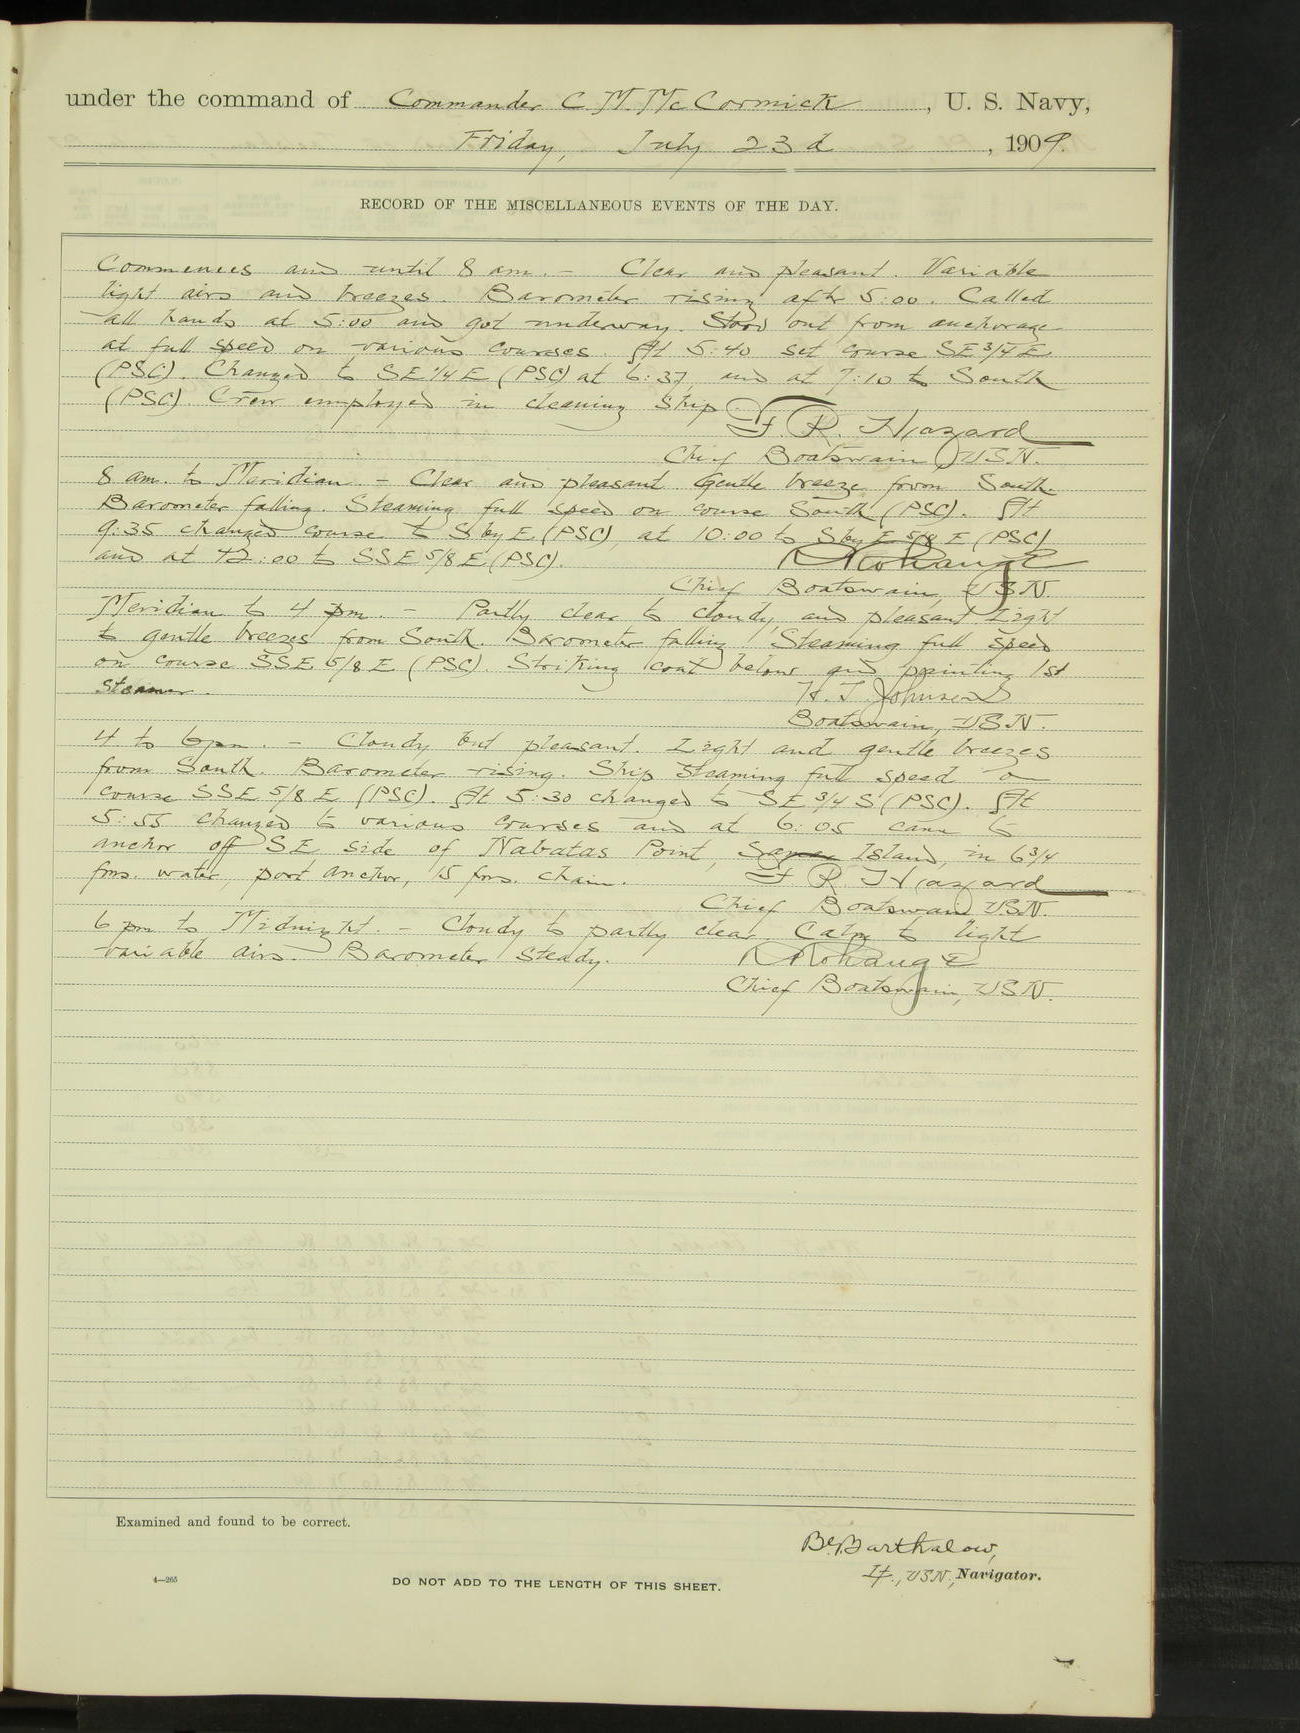 under the command of Commander C M McCormick, U. S. Navy,
Friday, July 23d, 1909.
RECORD OF THE MISCELLANEOUS EVENTS OF THE DAY.
Commences and until 8 am. - Clear and pleasant. Variable
light airs and breezes. Barometer rising after 5:00. Called
all hands at 5:00 and got underway. Stood out from anchorage
at full speed on various courses. At 5:40 set course SE 3/4 E
(PSC). Changed to SE 1/4 E (PSC) at 6:37, and at 7:10 to South
(PSC). Crew employed in cleaning ship.
F R. Hazard
Chief Boatswain, USN.
8 am. to Meridian - Clear and pleasant Gentle breeze from South.
Barometer falling. Steaming full speed on course South (PSC). At
9:35 changed course to S by E (PSC), at 10:00 to S by E 5/8 E (PSC)
and at 12:00 to SSE 5/8 E (PSC).
Chief Boatswain, USN.
Meridian to 4 pm. - Partly clear to cloudy and pleasant Light
to gentle breezes from South. Barometer falling. Steaming full speed
on course SSE 5/8 E (PSC). Striking coal below and painting 1st
steamer.
H. J. Johnson
Boatswain, USN.
4 to 6 pm. - Cloudy but pleasant. Light and gentle breezes
from South. Barometer rising. Ship steaming full speed on
course SSE 5/8 E (PSC). At 5:30 changed to SE 3/4 S (PSC). At
5:55 changed to various courses and at 6:05 came to
anchor off SE side of Nabatas Point, Samar Island, in 6 3/4
fms. water, port anchor, 15 fms. chain.
F R. Hazard
Chief Boatswain USN.
6 pm to Midnight. - Cloudy to partly clear. Calm to light
variable airs. Barometer steady.
Chief Boatswain, USN.
Examined and found to be correct.
Barthalow,
Lt., USN, Navigator.
4—265
DO NOT ADD TO THE LENGTH OF THIS SHEET.